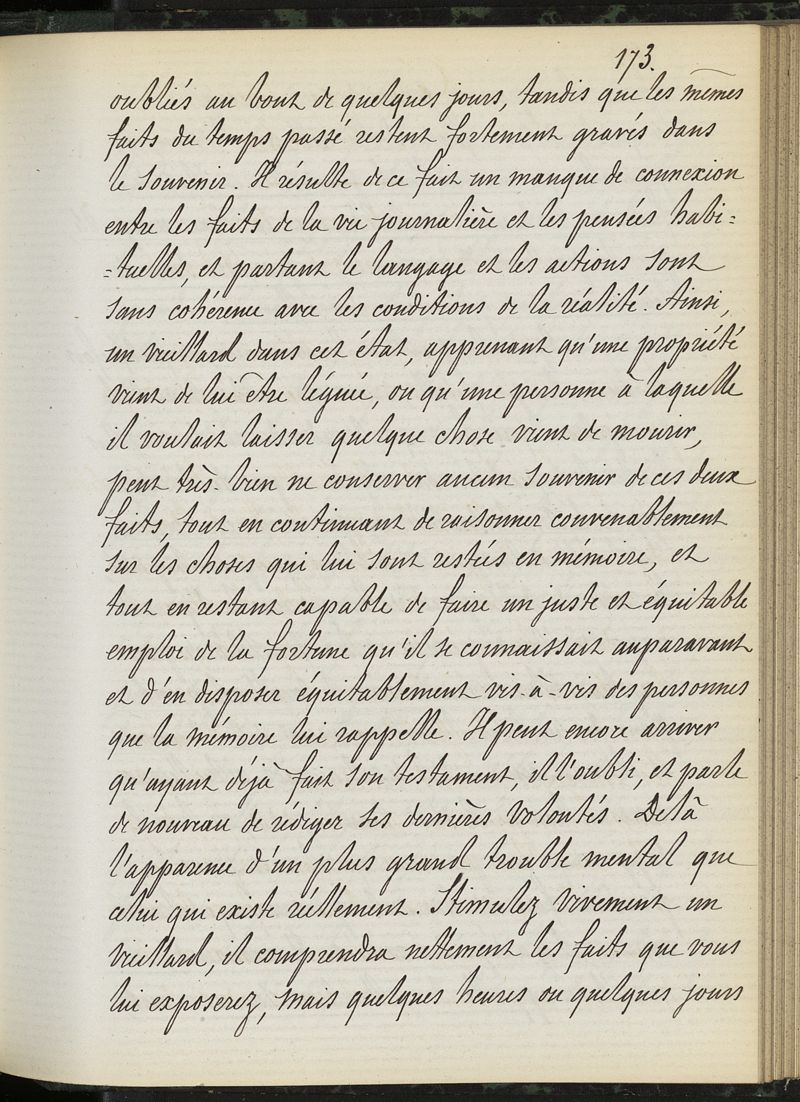 173.
oubliés au bout de quelques jours, tandis que les mêmes
faits du temps passé restent fortement gravés dans
le souvenir. Il résulte de ce fait un manque de connexion
entre les faits de la vie journalière et les pensées habi=
=tuelles, et partant le langage et les actions sont
sans cohérence avec les conditions de la réalité. Ainsi,
un vieillard dans cet état, apprenant qu'une propriété
vient de lui être léguée, ou qu'une personne à laquelle
il voulait laisser quelque chose vient de mourir,
peut très-bien ne conserver aucun souvenir de ces deux
faits, tout en continuant de raisonner convenablement
sur les choses qui lui sont restées en mémoire, et
tout en restant capable de faire un juste et équitable
emploi de la fortune qu'il se connaissait auparavant
et d'en disposer équitablement vis-à-vis des personnes
que la mémoire lui rappelle. Il peut encore arriver
qu'ayant déjà fait son testament, il l'oubli, et parle
de nouveau de rédiger ses dernières volontés. De là
l'apparence d'un plus grand trouble mental que
celui qui existe réellement. Stimulez vivement un
vieillard, il comprendra nettement les faits que vous
lui exposerez, mais quelques heures ou quelques jours